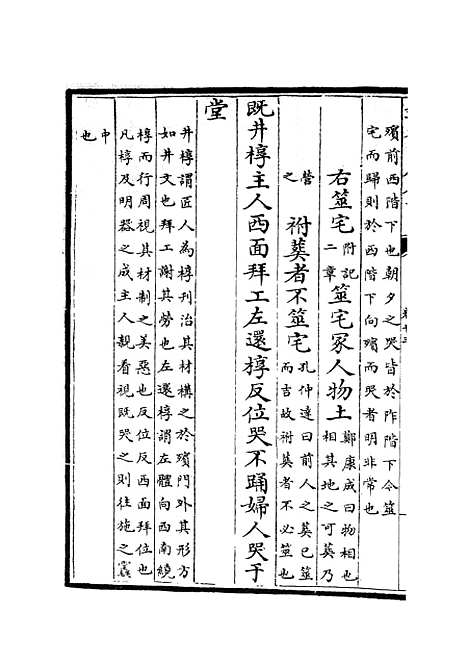 殯前西階下也朝夕之哭皆於阼階下今筮
宅而歸則於西階下向殯而哭者明非常也
右筮宅
附記
二章
筮宅冢人物土
鄭康成曰物相也
相其地之可葬乃
營
之
祔葬者不筮宅
孔仲達曰前人之葬已筮
而吉故祔葬者不必筮也
既井椁主人西面拜工左還椁反位哭不踊婦人哭于
堂
井椁謂匠人為椁刋治其材構之於殯門外其形方
如井文也拜工謝其勞也左還椁謂左體向西南繞
椁而行周視其材制之美惡也反位反西面拜位也
凡椁及明器之成主人親看視既哭之則往施之窆
中
也